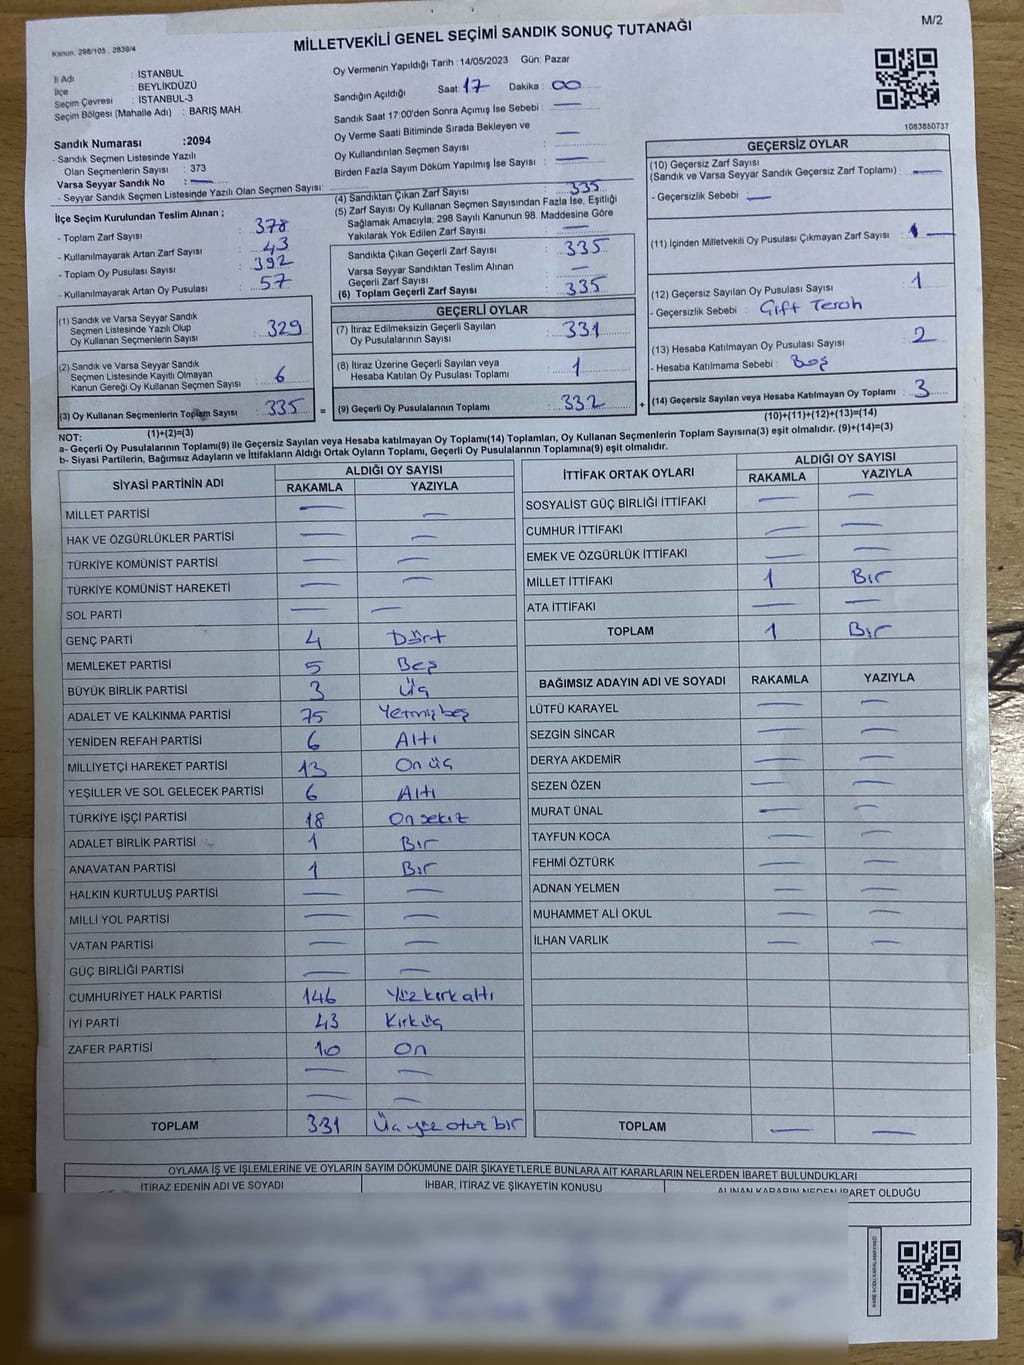 M/2
Kanun. 298/105 , 2839/4
MİLLETVEKİLİ GENEL SEÇİMİ SANDIK SONUÇ TUTANAĞI
İl Adı : İSTANBUL
İlçe : BEYLİKDÜZÜ
Seçim Çevresi : İSTANBUL-3
Seçim Bölgesi (Mahalle Adı) : BARIŞ MAH.
Sandık Numarası :2094
- Sandık Seçmen Listesinde Yazılı
Olan Seçmenlerin Sayısı : 373
Varsa Seyyar Sandık No : —
- Seyyar Sandık Seçmen Listesinde Yazılı Olan Seçmen Sayısı:
Oy Vermenin Yapıldığı Tarih : 14/05/2023 Gün: Pazar
Sandığın Açıldığı Saat: 17 Dakika : 00
Sandık Saat 17:00'den Sonra Açımış İse Sebebi : —
Oy Verme Saati Bitiminde Sırada Bekleyen ve
Oy Kullandırılan Seçmen Sayısı : —
Birden Fazla Sayım Döküm Yapılmış İse Sayısı : —
1083850737
İlçe Seçim Kurulundan Teslim Alınan ;
- Toplam Zarf Sayısı : 378
- Kullanılmayarak Artan Zarf Sayısı : 43
- Toplam Oy Pusulası Sayısı : 392
- Kullanılmayarak Artan Oy Pusulası : 57
(1) Sandık ve Varsa Seyyar Sandık
Seçmen Listesinde Yazılı Olup
Oy Kullanan Seçmenlerin Sayısı : 329
(2) Sandık ve Varsa Seyyar Sandık
Seçmen Listesinde Kayıtlı Olmayan
Kanun Gereği Oy Kullanan Seçmen Sayısı : 6
(3) Oy Kullanan Seçmenlerin Toplam Sayısı : 335 =
(1)+(2)=(3)
(4) Sandıktan Çıkan Zarf Sayısı : 335
(5) Zarf Sayısı Oy Kullanan Seçmen Sayısından Fazla İse, Eşitliği
Sağlamak Amacıyla; 298 Sayılı Kanunun 98. Maddesine Göre
Yakılarak Yok Edilen Zarf Sayısı : —
Sandıkta Çıkan Geçerli Zarf Sayısı : 335
Varsa Seyyar Sandıktan Teslim Alınan
Geçerli Zarf Sayısı : —
(6) Toplam Geçerli Zarf Sayısı : 335
GEÇERLİ OYLAR
(7) İtiraz Edilmeksizin Geçerli Sayılan
Oy Pusulasının Sayısı : 331
(8) İtiraz Üzerine Geçerli Sayılan veya
Hesaba Katılan Oy Pusulası Toplamı : 1
(9) Geçerli Oy Pusulalarının Toplamı : 332 +
GEÇERSİZ OYLAR
(10) Geçersiz Zarf Sayısı
(Sandık ve Varsa Seyyar Sandık Geçersiz Zarf Toplamı) : —
- Geçersizlik Sebebi : —
(11) İçinden Milletvekili Oy Pusulası Çıkmayan Zarf Sayısı : —
(12) Geçersiz Sayılan Oy Pusulası Sayısı : 1
- Geçersizlik Sebebi : Çift Tercih
(13) Hesaba Katılmayan Oy Pusulası Sayısı : 2
- Hesaba Katılmama Sebebi : Boş
(14) Geçersiz Sayılan veya Hesaba Katılmayan Oy Toplamı : 3
(10)+(11)+(12)+(13)=(14)
NOT:
a- Geçerli Oy Pusulalarının Toplamı(9) ile Geçersiz Sayılan veya Hesaba katılmayan Oy Toplamı(14) Toplamları, Oy Kullanan Seçmenlerin Toplam Sayısına(3) eşit olmalıdır. (9)+(14)=(3)
b- Siyasi Partilerin, Bağımsız Adayların ve İttifakların Aldığı Ortak Oyların Toplamı, Geçerli Oy Pusulalarının Toplamına(9) eşit olmalıdır.
SİYASİ PARTİNİN ADI ALDIĞI OY SAYISI
RAKAMLA YAZIYLA
MİLLET PARTİSİ — —
HAK VE ÖZGÜRLÜKLER PARTİSİ — —
TÜRKİYE KOMÜNİST PARTİSİ — —
TÜRKİYE KOMÜNİST HAREKETİ — —
SOL PARTİ — —
GENÇ PARTİ 4 Dört
MEMLEKET PARTİSİ 5 Beş
BÜYÜK BİRLİK PARTİSİ 3 Üç
ADALET VE KALKINMA PARTİSİ 75 Yetmişbeş
YENİDEN REFAH PARTİSİ 6 Altı
MİLLİYETÇİ HAREKET PARTİSİ 13 On üç
YEŞİLLER VE SOL GELECEK PARTİSİ 6 Altı
TÜRKİYE İŞÇİ PARTİSİ 18 On sekiz
ADALET BİRLİK PARTİSİ 1 Bir
ANAVATAN PARTİSİ 1 Bir
HALKIN KURTULUŞ PARTİSİ — —
MİLLİ YOL PARTİSİ — —
VATAN PARTİSİ — —
GÜÇ BİRLİĞİ PARTİSİ — —
CUMHURİYET HALK PARTİSİ 146 Yüz kırk altı
İYİ PARTİ 43 Kırk üç
ZAFER PARTİSİ 10 On
— —
— —
TOPLAM 331 Üç yüz otuz bir
İTTİFAK ORTAK OYLARI ALDIĞI OY SAYISI
RAKAMLA YAZIYLA
SOSYALİST GÜÇ BİRLİĞİ İTTİFAKI — —
CUMHUR İTTİFAKI — —
EMEK VE ÖZGÜRLÜK İTTİFAKI — —
MİLLET İTTİFAKI 1 Bir
ATA İTTİFAKI — —
TOPLAM 1 Bir
BAĞIMSIZ ADAYIN ADI VE SOYADI RAKAMLA YAZIYLA
LÜTFÜ KARAYEL — —
SEZGİN SİNCAR — —
DERYA AKDEMİR — —
SEZEN ÖZEN — —
MURAT ÜNAL — —
TAYFUN KOCA — —
FEHMİ ÖZTÜRK — —
ADNAN YELMEN — —
MUHAMMET ALİ OKUL — —
İLHAN VARLIK — —
TOPLAM — —
OYLAMA İŞ VE İŞLEMLERİNE VE OYLARIN SAYIM DÖKÜMÜNE DAİR ŞİKAYETLERLE BUNLARA AİT KARARLARIN NELERDEN İBARET BULUNDUKLARI
İTİRAZ EDENİN ADI VE SOYADI İHBAR, İTİRAZ VE ŞİKAYETİN KONUSU ALINAN KARARIN NEDEN İBARET OLDUĞU